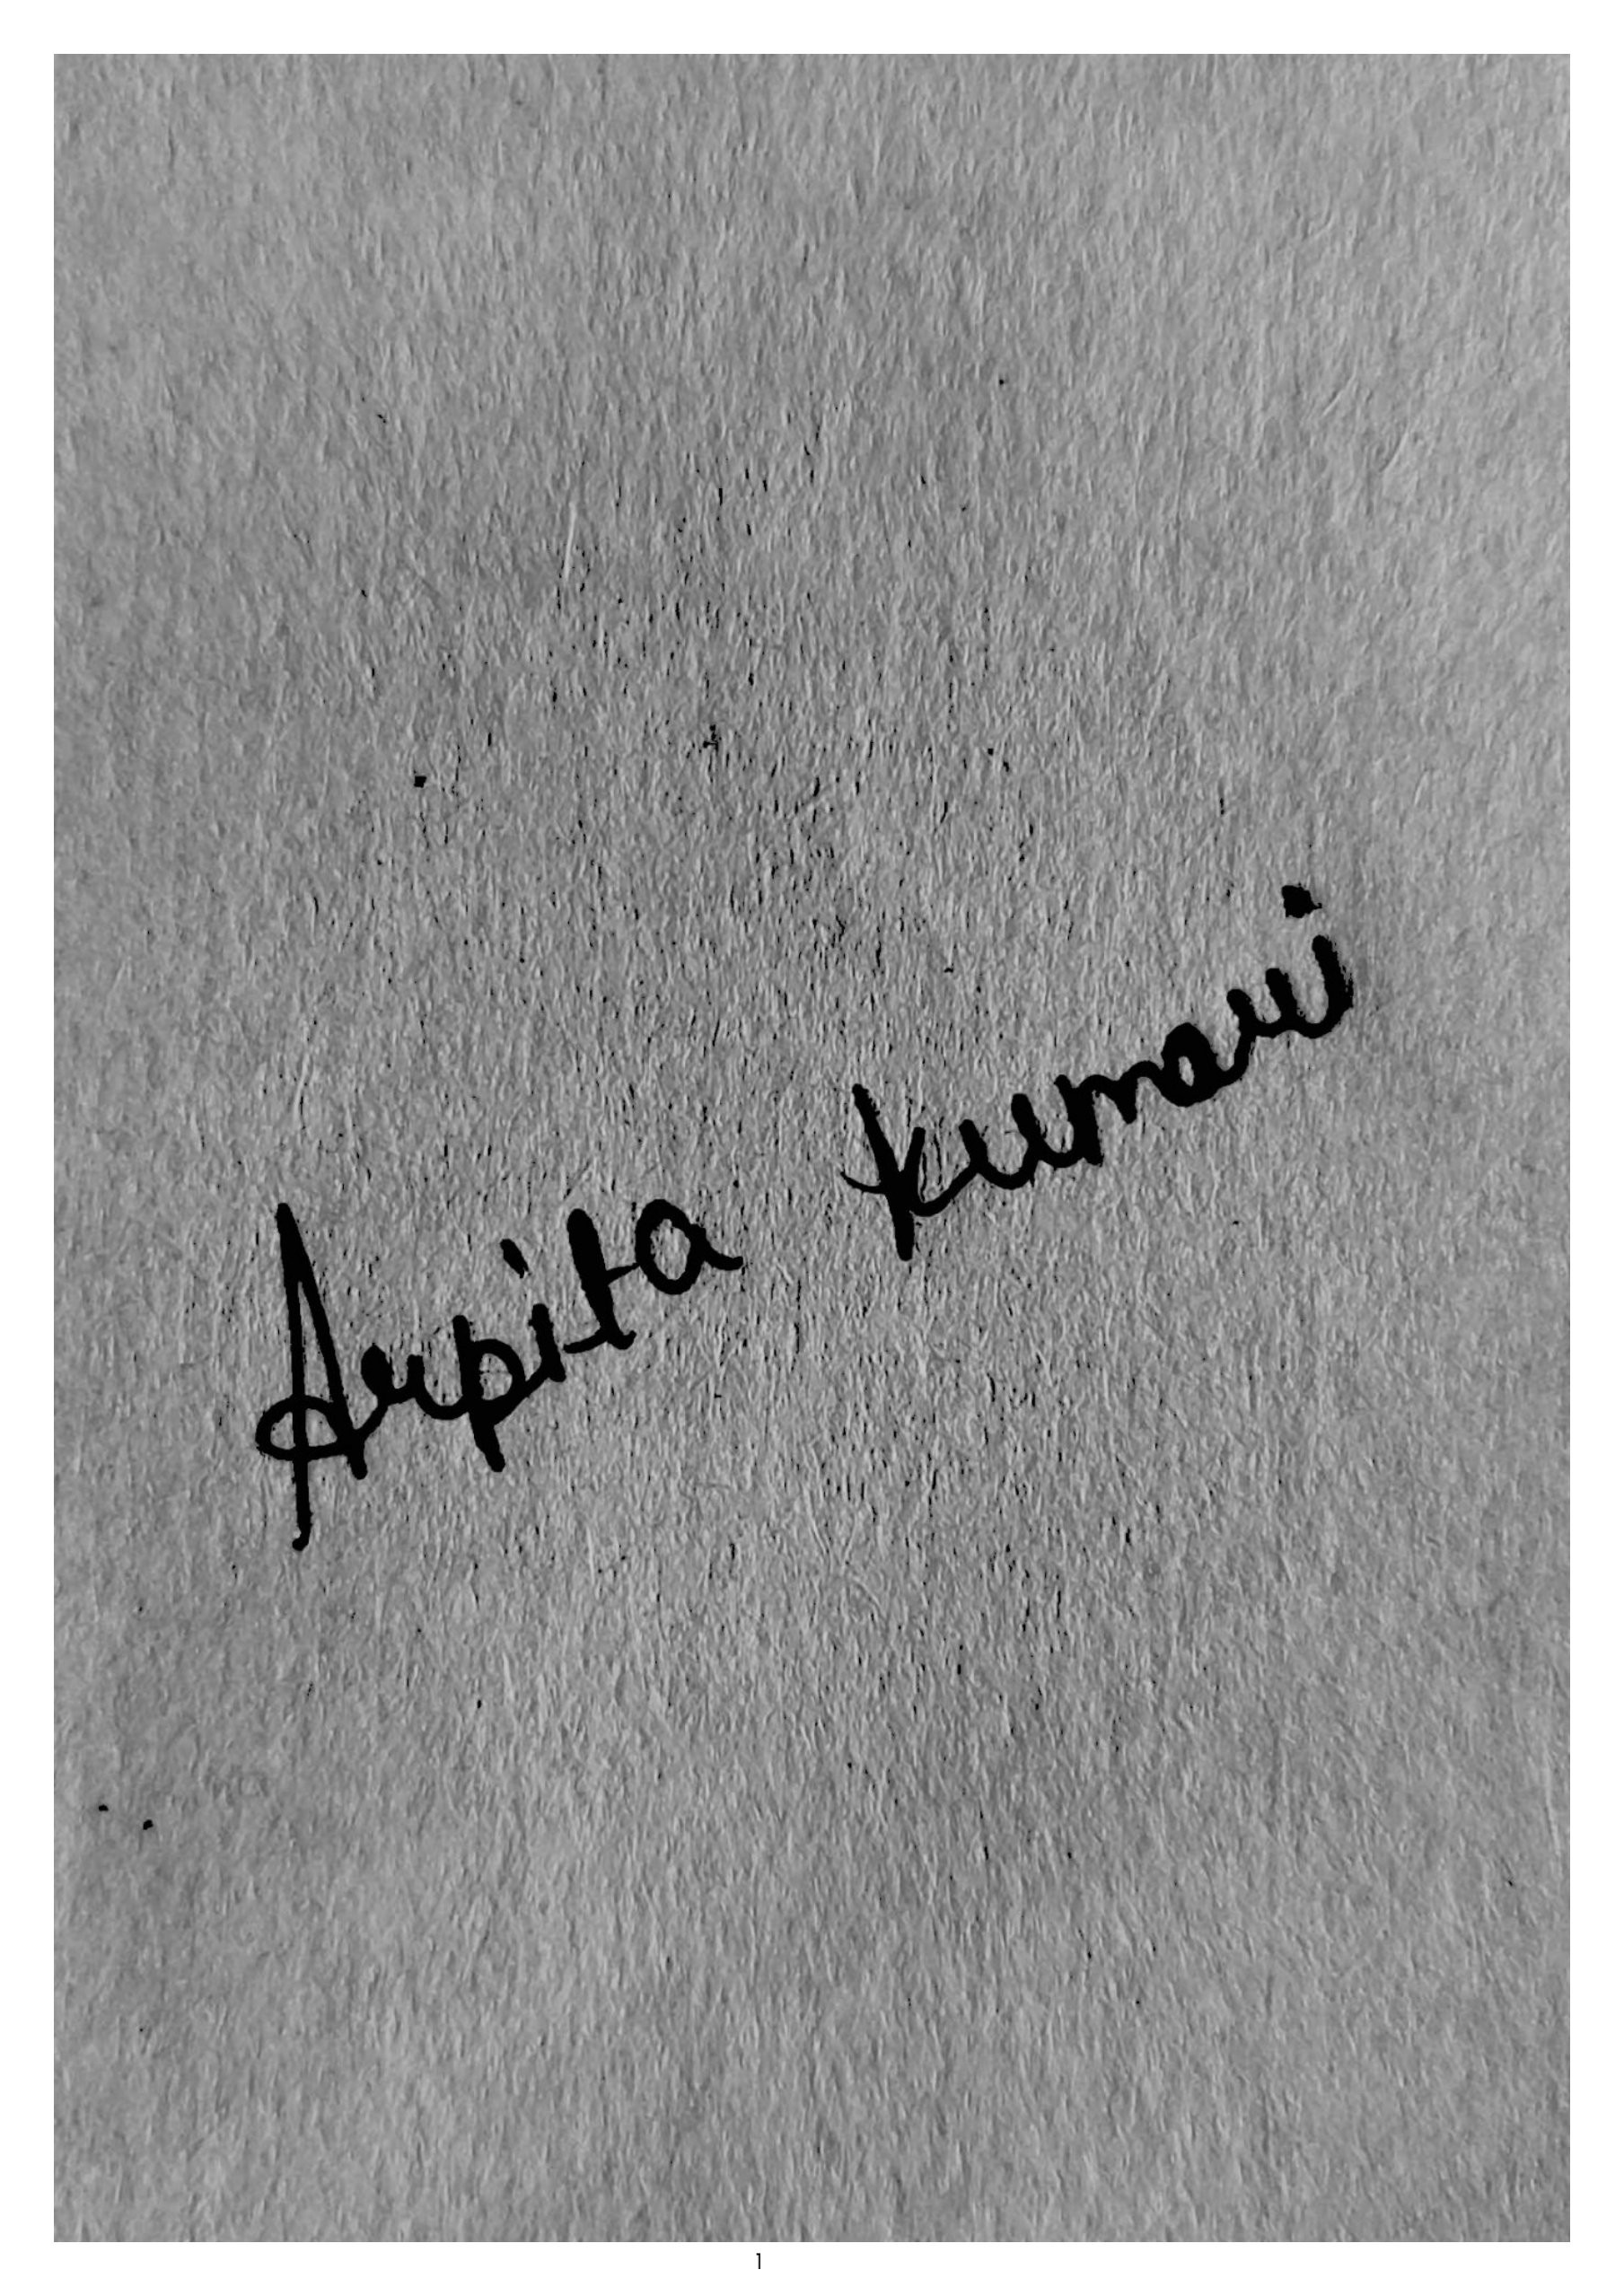 Arpita kumari
1